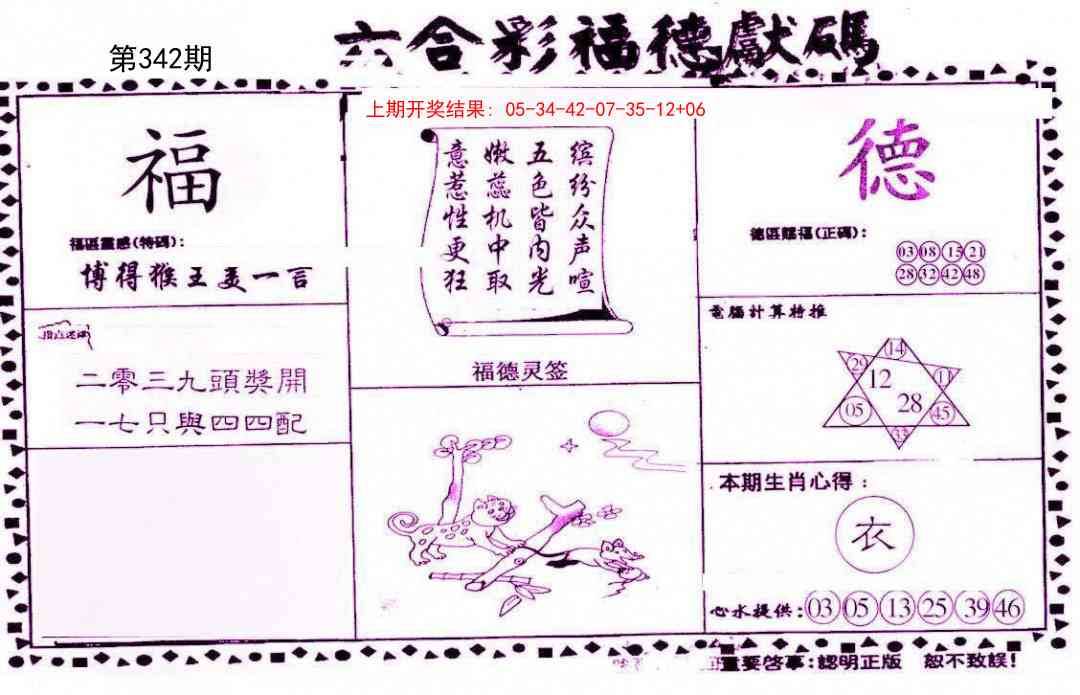 第342期
六合彩福德獻碼
上期开奖结果：05-34-42-07-35-12+06
福
福區靈感(特碼):
博得猴王美一言
二零三九頭獎開
一七只與四四配
缤纷众声喧
五色皆内光
嫩蕊机中取
意惹性更狂
福德灵签
德
德區賜福(正碼):
03 08 15 21
28 32 42 48
電腦計算特推
14
29 12 11
05 28 45
33
本期生肖心得：
衣
心水提供:03 05 13 25 39 46
重要啓事:認明正版 恕不致誤!